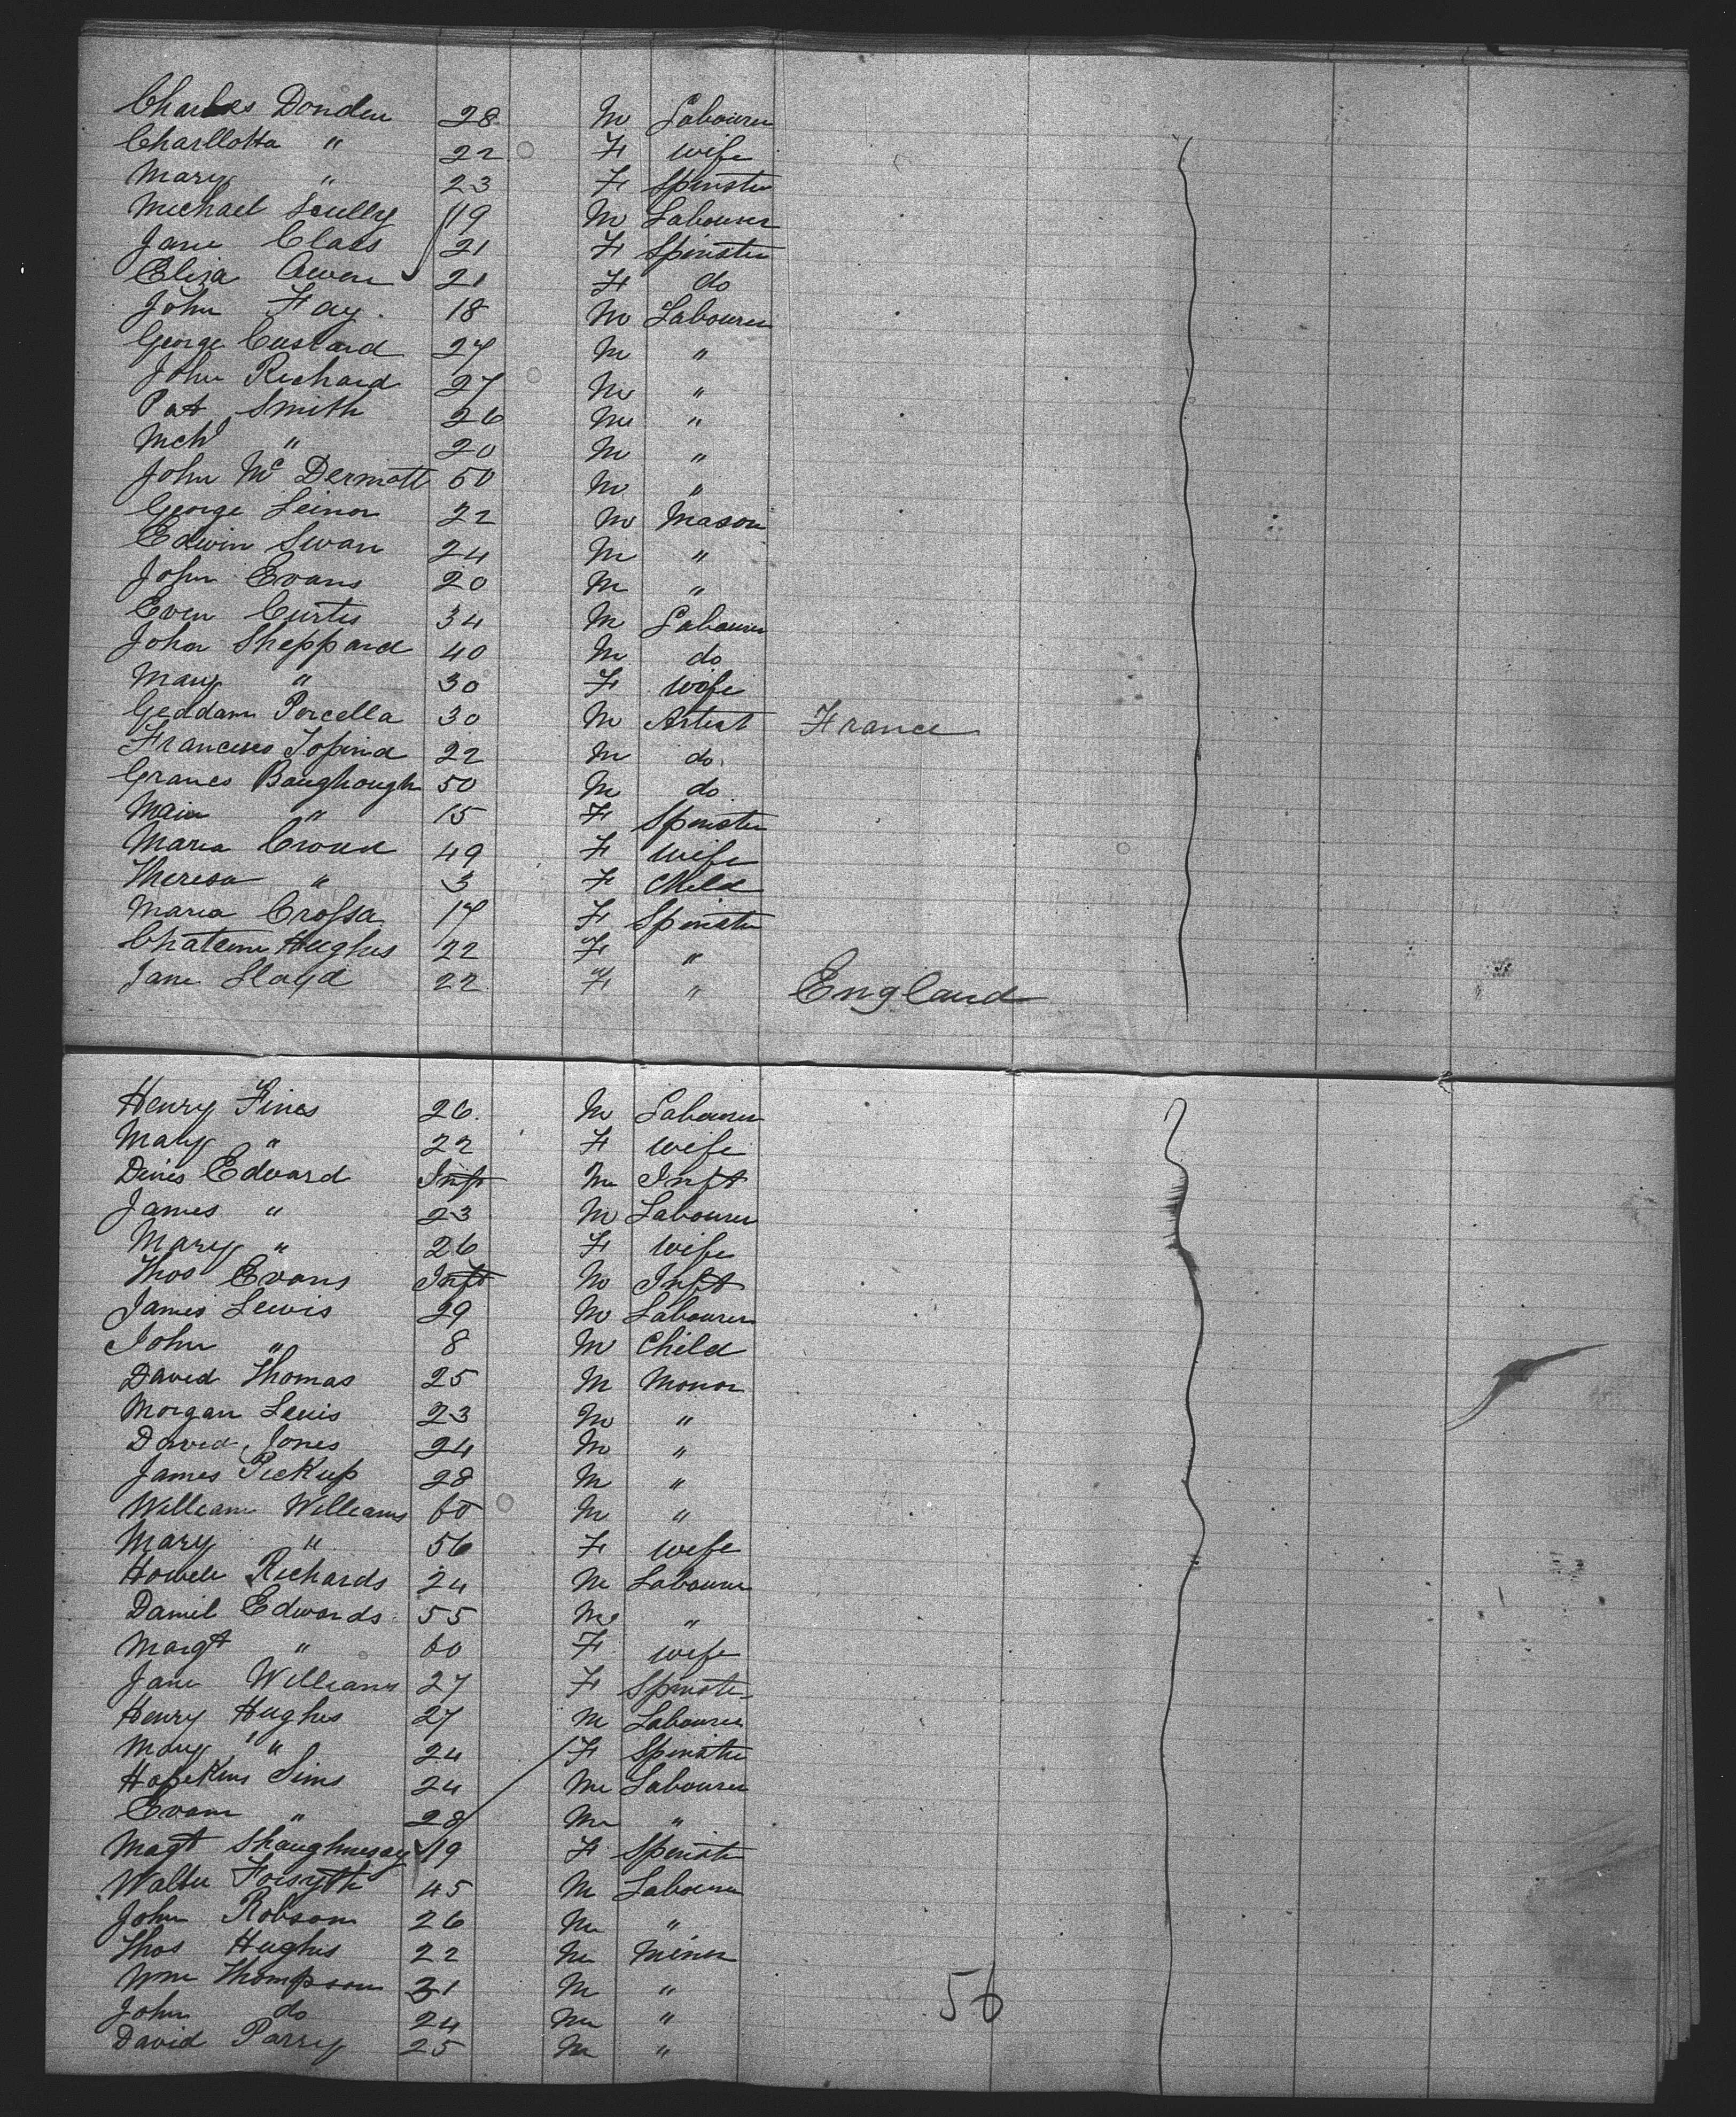 Charles Donden 28 M Labourer
Charllotta " 22 F wife
Mary " 23 F Spinster
Michael Scully 19 M Labourer
Jane Class 21 F Spinster
Eliza Awen 21 F do
John Fay 18 M Labourer
George Custard 27 M "
John Richard 27 M "
Pat Smith 26 M "
Mchl " 20 M "
John McDermott 50 M "
George Leinor 22 M Mason
Edwin Swan 24 M "
John Evans 20 M "
Even Curtis 34 M Labourer
John Sheppard 40 M do
Mary " 30 F wife
Geddam Porcella 30 M Artist France
Francisco 22 M do
50 M do
" 15 F Spinster
Maria 49 F wife
Theresa " 3 F Child
Maria Crossa 17 F Spinster
Hughes 22 F "
Jane Lloyd 22 F " England
Henry Fines 26 M Labourer
Mary " 22 F wife
Edward Inft M Inft
James " 23 M Labourer
Mary " 26 F wife
Thos Evans Inft M Inft
James Lewis 29 M Labourer
John " 8 M Child
David Thomas 25 M
Morgan Lewis 23 M "
David Jones 24 M "
James Pickup 28 M "
William Williams 60 M "
Mary " 56 F wife
Howell Richards 24 M Labourer
Daniel Edwards 55 M "
Margt " 60 F wife
Jane Williams 27 F Spinster
Henry Hughes 27 M Labourer
Mary " 24 F Spinster
Hopkins Sims 24 M Labourer
Evan " 28 M "
Magt Shaughnessy 19 F Spinster
Walter Forsyth 45 M Labourer
John Robson 26 M "
Thos Hughes 22 M Miner
Wm Thompson 31 M "
John do 24 M "
David Parry 25 M "
56